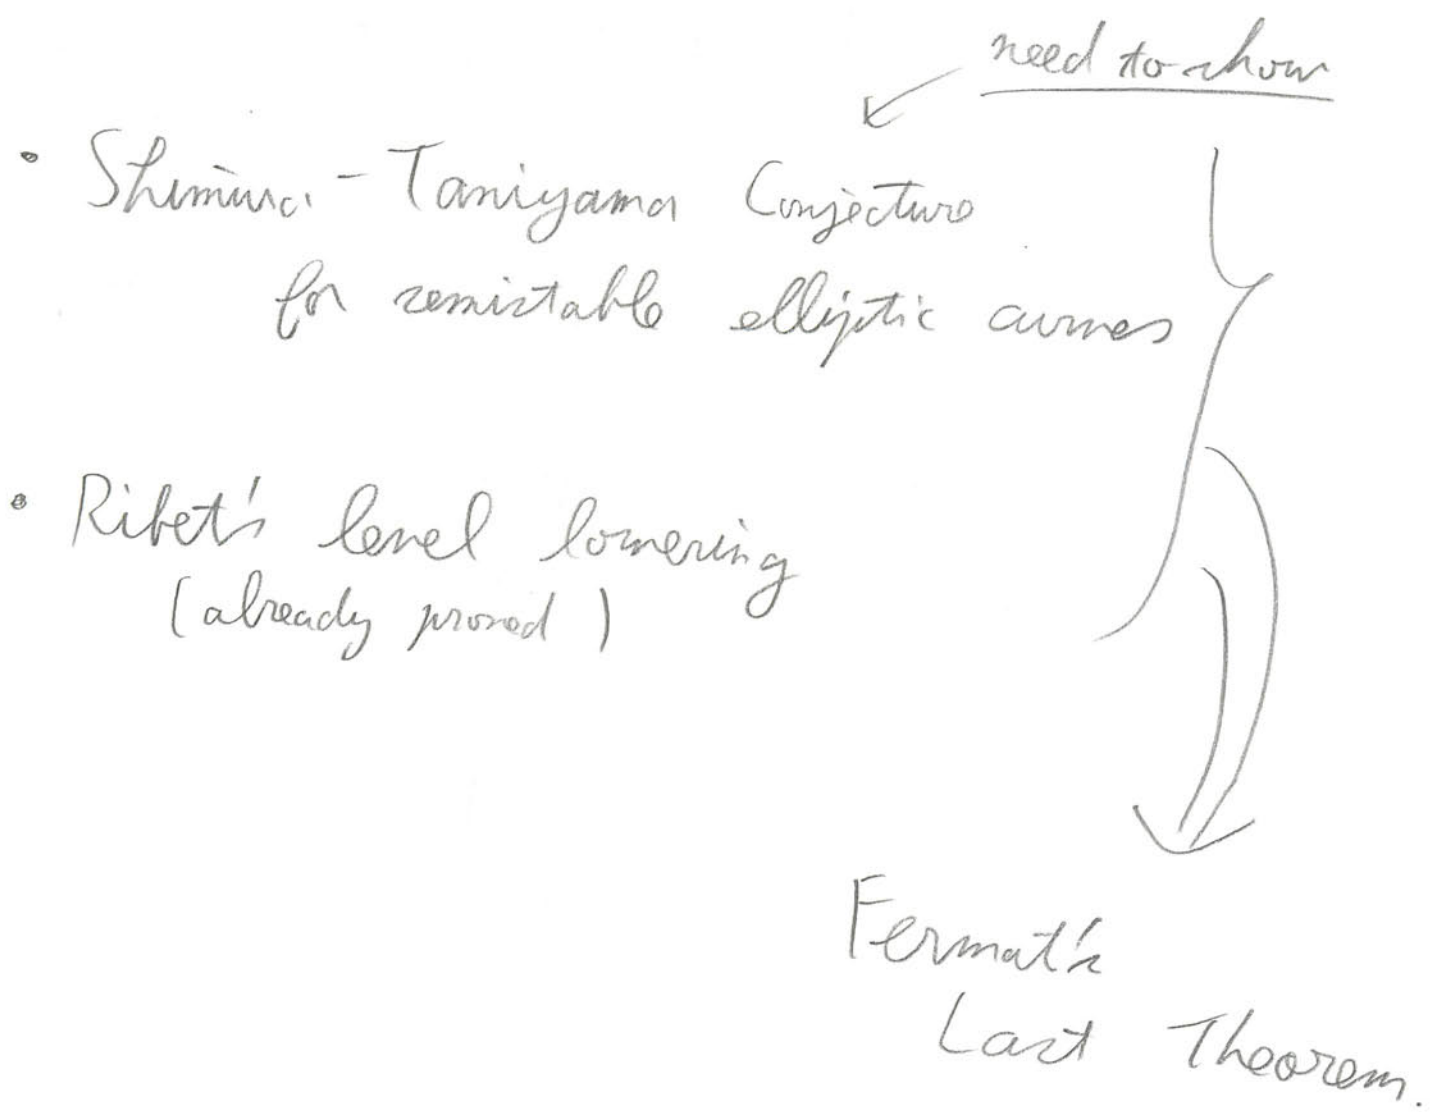 need to show
• Shimura-Taniyama Conjecture
for semistable elliptic curves
• Ribet's level lowering
(already proved)
Fermat's
Last Theorem.